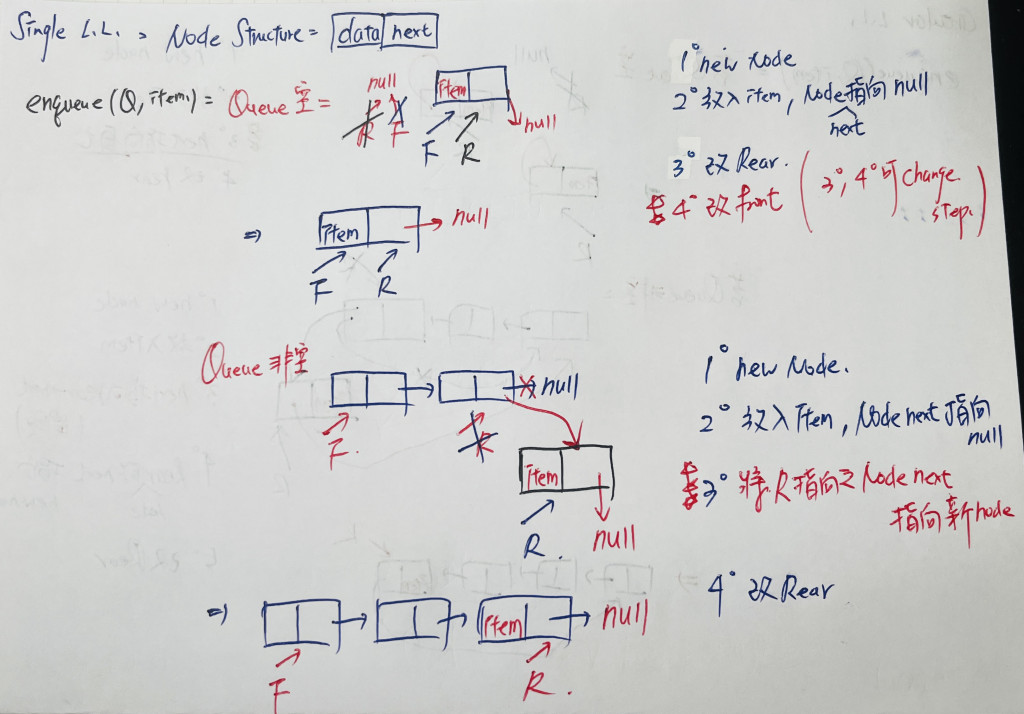 Single L.L. , Node Structure = data next
enqueue (Q, item) = Queue 空 =
null
R F
item
null
F R
1° new Node
2° 放入 item, Node指向 null
next
3° 改 Rear.
4° 改 front ( 3°, 4° 可 change
step. )
⇒ item → null
F R
Queue 非空
null
F. R
item
R. null
1° new Node.
2° 放入 Item, Node next 指向
null
3° 將 R 指向之 Node next
指向新 node
4° 改 Rear
⇒ item → null
F R.